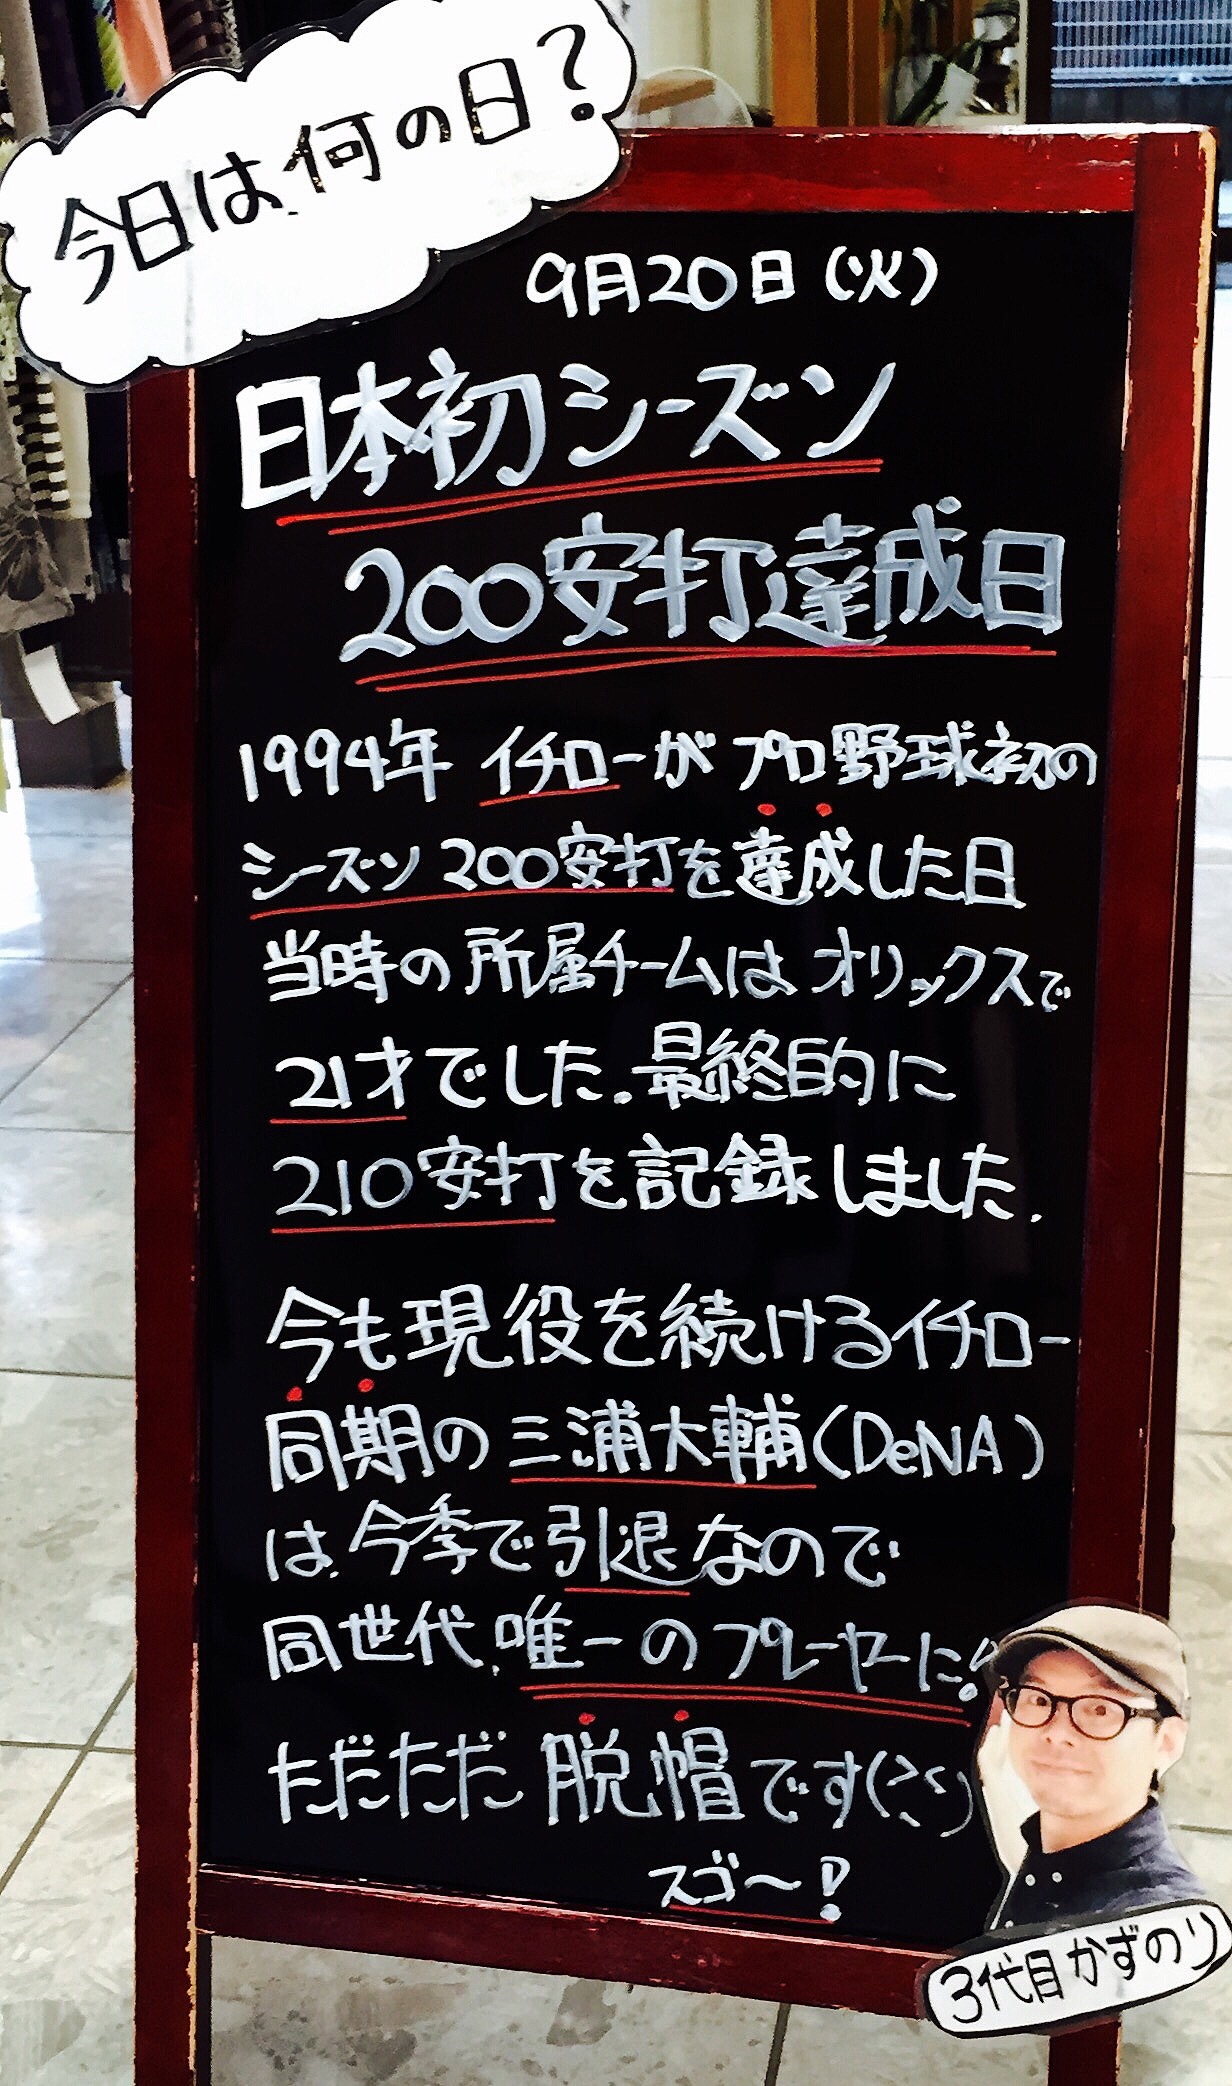 今日は何の日?
9月20日(火)
日本初シーズン
200安打達成日
1994年 イチローがプロ野球初の
シーズン200安打を達成した日
当時の所属チームはオリックスで
21才でした.最終的に
210安打を記録しました.
今も現役を続けるイチロー
同期の三浦大輔(DeNA)
は今季で引退なので
同世代唯一のプレーヤーに!
ただただ脱帽です
スゴ〜!
3代目かずのり